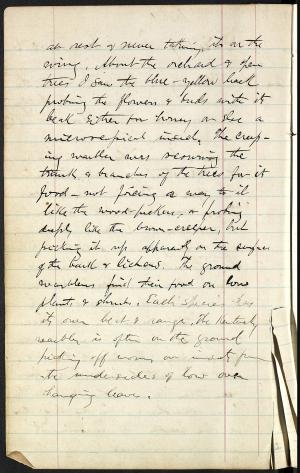 at rest & never taking it on the
wing. About the orchard & pear
trees I saw the blue-yellow back
probing the flowers & buds with its
beak either for honey or for a
microscopical insect. The creep-
ing warbler was scouring the
trunk & branches of the trees for its
food — not forcing a way to it
like the wood-peckers, or probing
deeply like the brown-creeper, but
picking it up apparently on the surface
of the bark & lichens. The ground
warblers find their food on low
plants & shrubs. Each species has
its own beat & range. The Kentucky
warbler is often on the ground
picking off worms and insects from
the undersides of low over
hanging leaves.